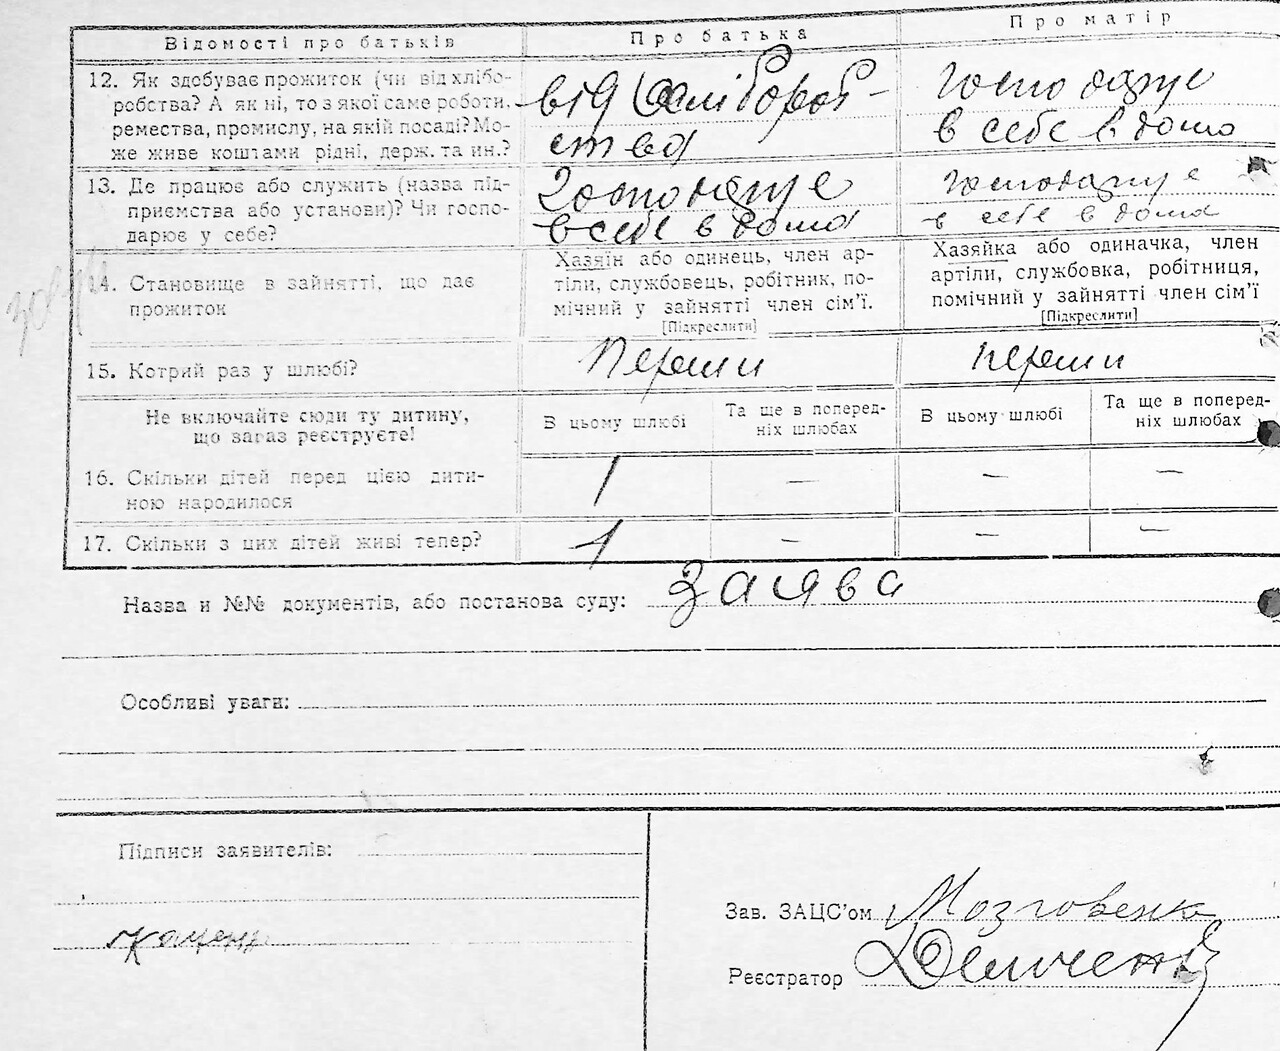 Відомості про батьків
Про батька
Про матір
12. Як здобуває прожиток (чи від хлібо-
робства? А як ні, то з якої саме роботи,
ремества, промислу, на якій посаді? Мо-
же живе коштами рідні, держ. та ин.?
від хлібороб-
ства
господарує
в себе в дома
13. Де працює або служить (назва під-
приємства або установи)? Чи госпо-
дарює у себе?
Господарує
в себе в дома
господарує
в себе в дома
14. Становище в зайнятті, що дає
прожиток
Хазяїн або одинець, член ар-
тіли, службовець, робітник, по-
мічний у зайнятті член сім’ї.
[Підкреслити]
Хазяйка або одиначка, член
артіли, службовка, робітниця,
помічний у зайнятті член сім’ї
[Підкреслити]
15. Котрий раз у шлюбі?
Перший
перший
Не включайте сюди ту дитину,
що зараз реєструєте!
В цьому шлюбі
Та ще в поперед-
ніх шлюбах
В цьому шлюбі
Та ще в поперед-
ніх шлюбах
16. Скільки дітей перед цією дити-
ною народилося
1 — — —
17. Скільки з цих дітей живі тепер?
1 — — —
Назва и №№ документів, або постанова суду: Заява
Особливі уваги:
Підписи заявителів:
Зав. ЗАЦС’ом Мозговенко
Реєстратор